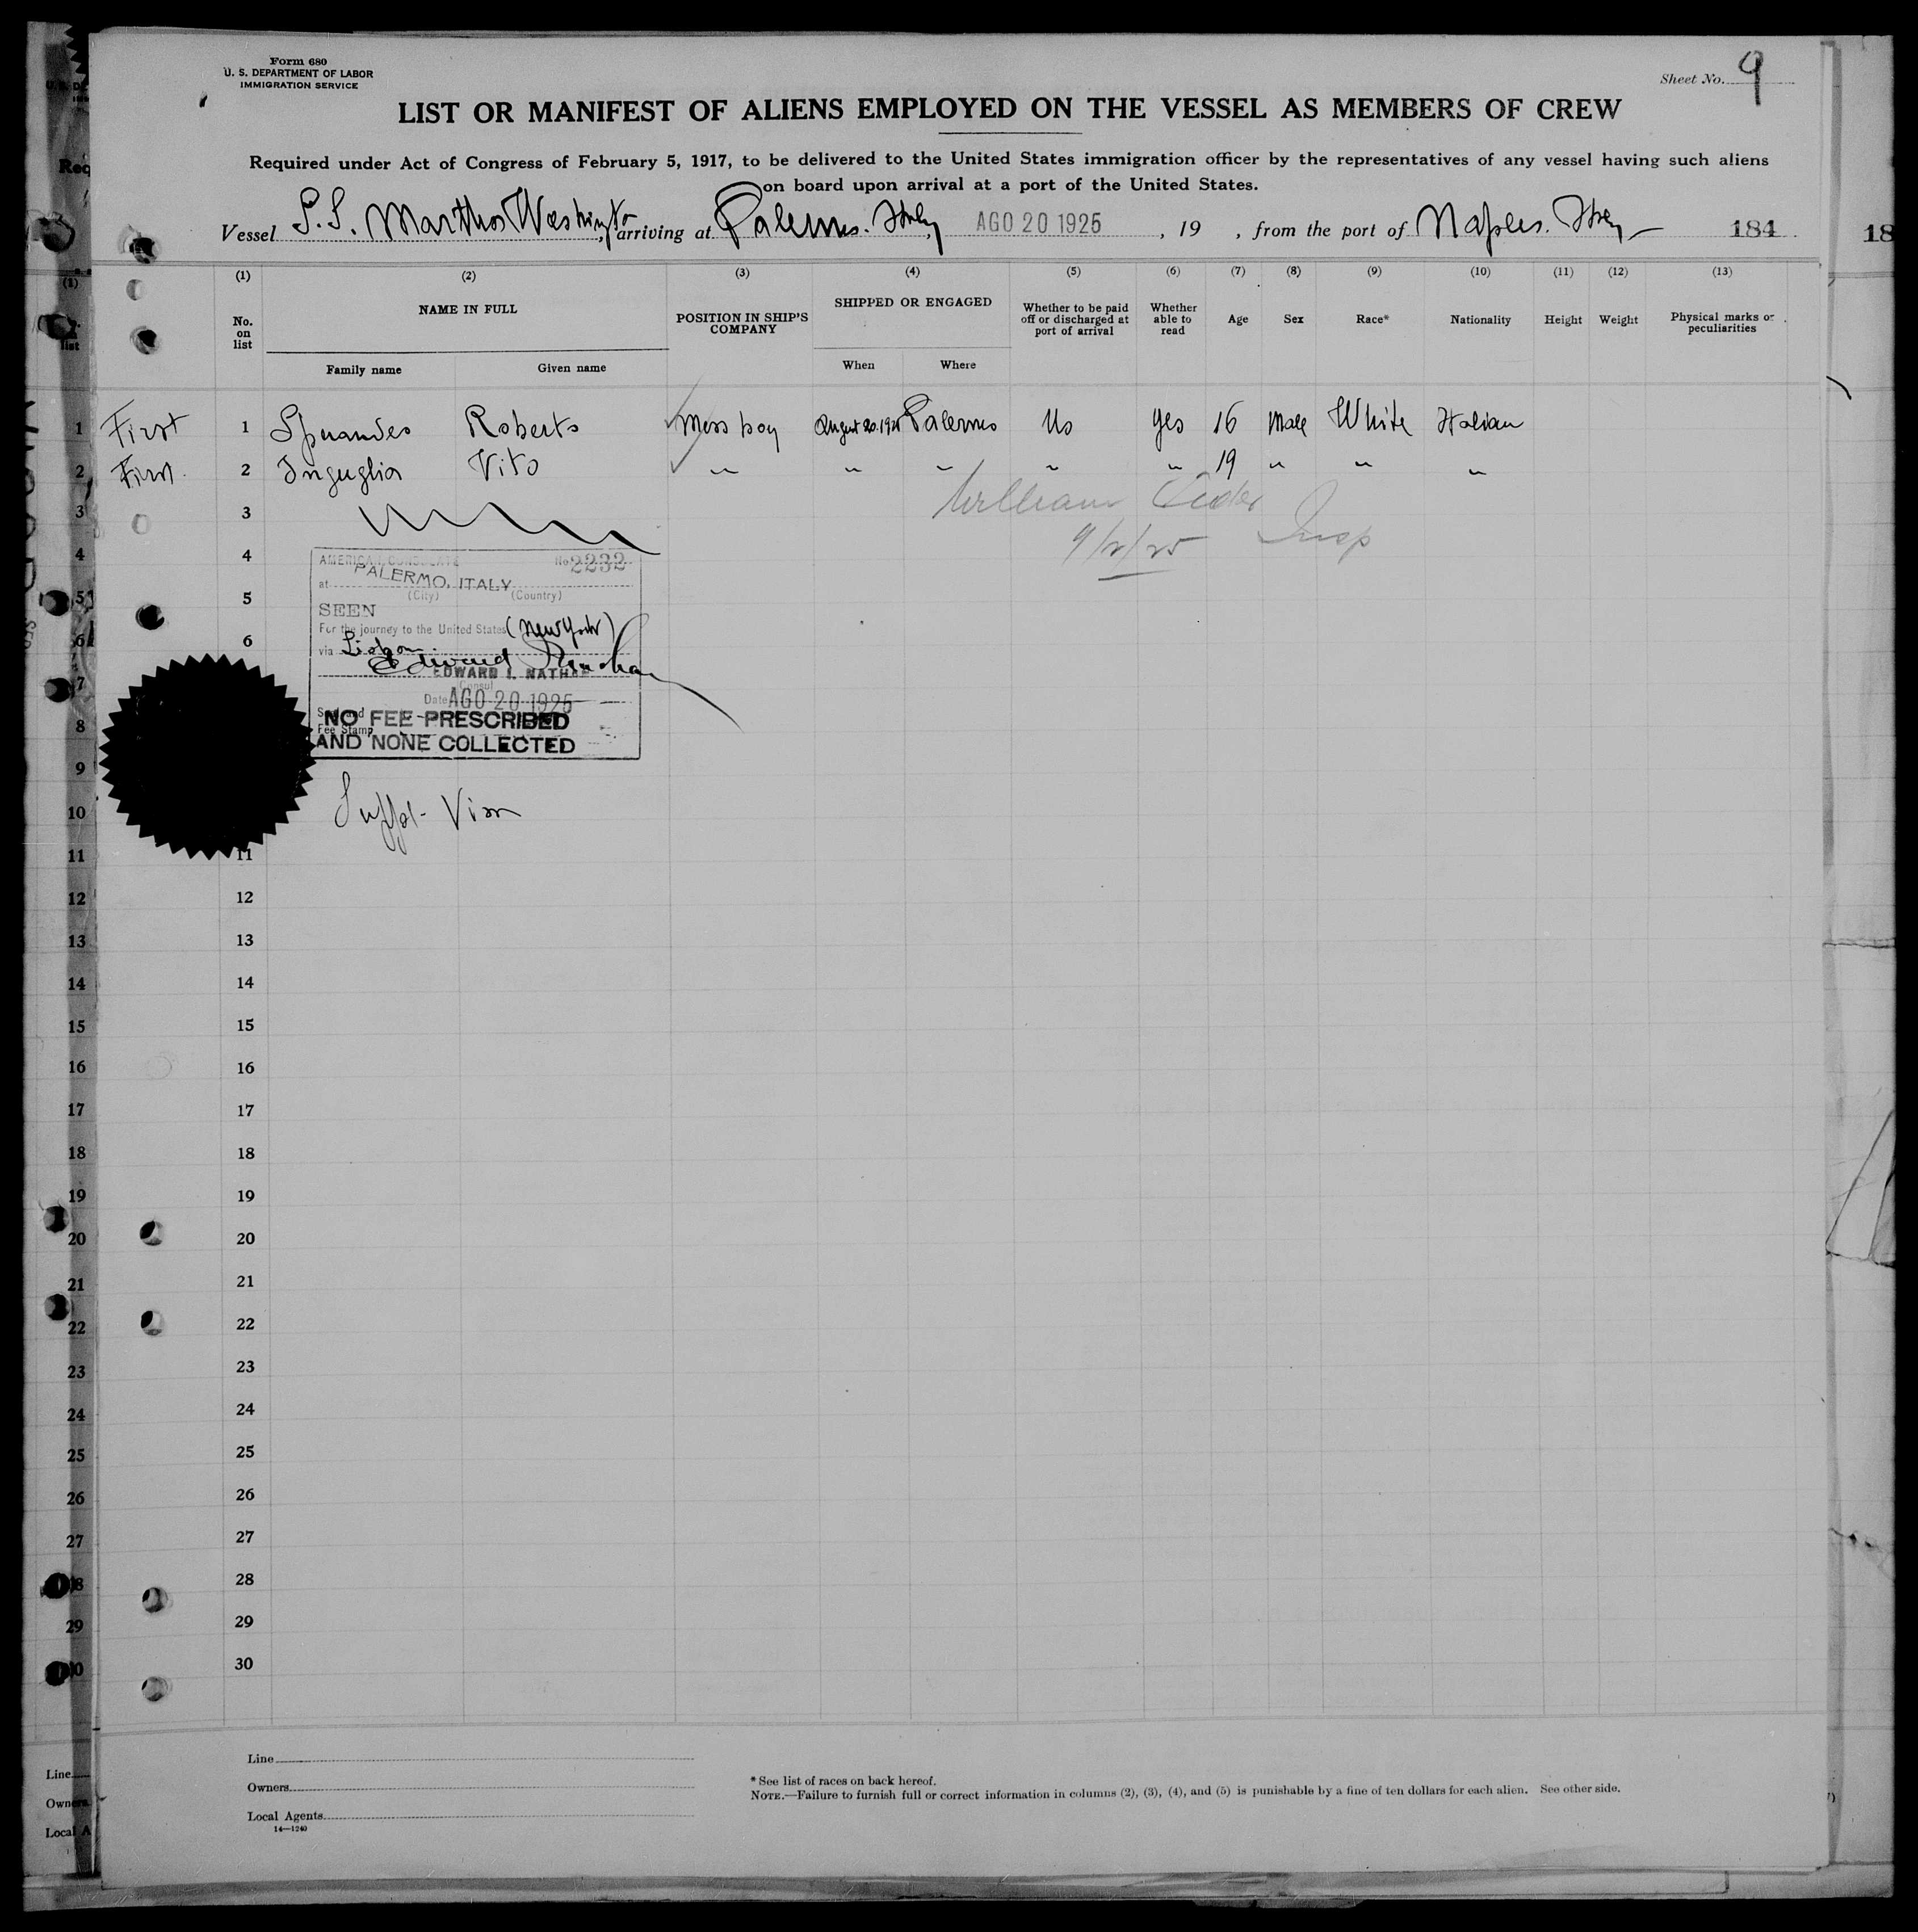 Form 680
U. S. DEPARTMENT OF LABOR
IMMIGRATION SERVICE
Sheet No. 9
LIST OR MANIFEST OF ALIENS EMPLOYED ON THE VESSEL AS MEMBERS OF CREW
Required under Act of Congress of February 5, 1917, to be delivered to the United States immigration officer by the representatives of any vessel having such aliens
on board upon arrival at a port of the United States.
Vessel S.S. Martha Washington, arriving at Palermo. Italy, AGO 20 1925, 19 , from the port of Naples. Italy 184
(1) (2) (3) (4) (5) (6) (7) (8) (9) (10) (11) (12) (13)
No. on list NAME IN FULL POSITION IN SHIP'S COMPANY SHIPPED OR ENGAGED Whether to be paid off or discharged at port of arrival Whether able to read Age Sex Race* Nationality Height Weight Physical marks or peculiarities
Family name Given name When Where
First 1 Roberto Mess boy August 20. 1925 Palermo No yes 16 Male White Italian
First 2 Inguglia Vito " " " " " 19 " " "
3 William
4 9/2/25 Insp
AMERICAN CONSULATE No. 2232
at PALERMO, ITALY
(City) (Country)
5
SEEN
For the journey to the United States (New York)
6
via Lisbon
EDWARD I. NATHAN
Consul
7
Date AGO 20 1925
Seal and
Fee Stamp
8
NO FEE PRESCRIBED
AND NONE COLLECTED
10 Suppl- Visa
11
12
13
14
15
16
17
18
19
20
21
22
23
24
25
26
27
28
29
30
Line
Owners
Local Agents
14—1240
* See list of races on back hereof.
NOTE.—Failure to furnish full or correct information in columns (2), (3), (4), and (5) is punishable by a fine of ten dollars for each alien. See other side.